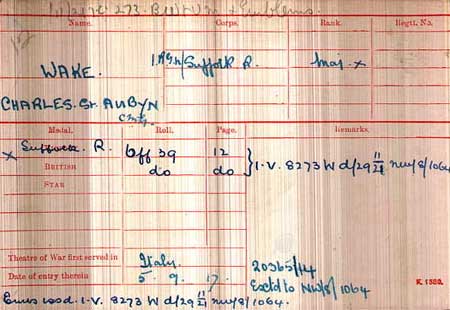 Name. Corps. Rank. Regtl. No.
WAKE. Suffolk R. Maj. x
CHARLES. St. AUBYN
Medal. Roll. Page. Remarks.
x R. Off 39 12
BRITISH do do I.V. 8273 W d/29 11/21 NW/8/1064
STAR
Theatre of War first served in Italy.
Date of entry therein 5. 9. 17.
20365/14
NW/8/1064
K 1380.
I.V. 8273 W d/29 11/21 NW/8/1064.